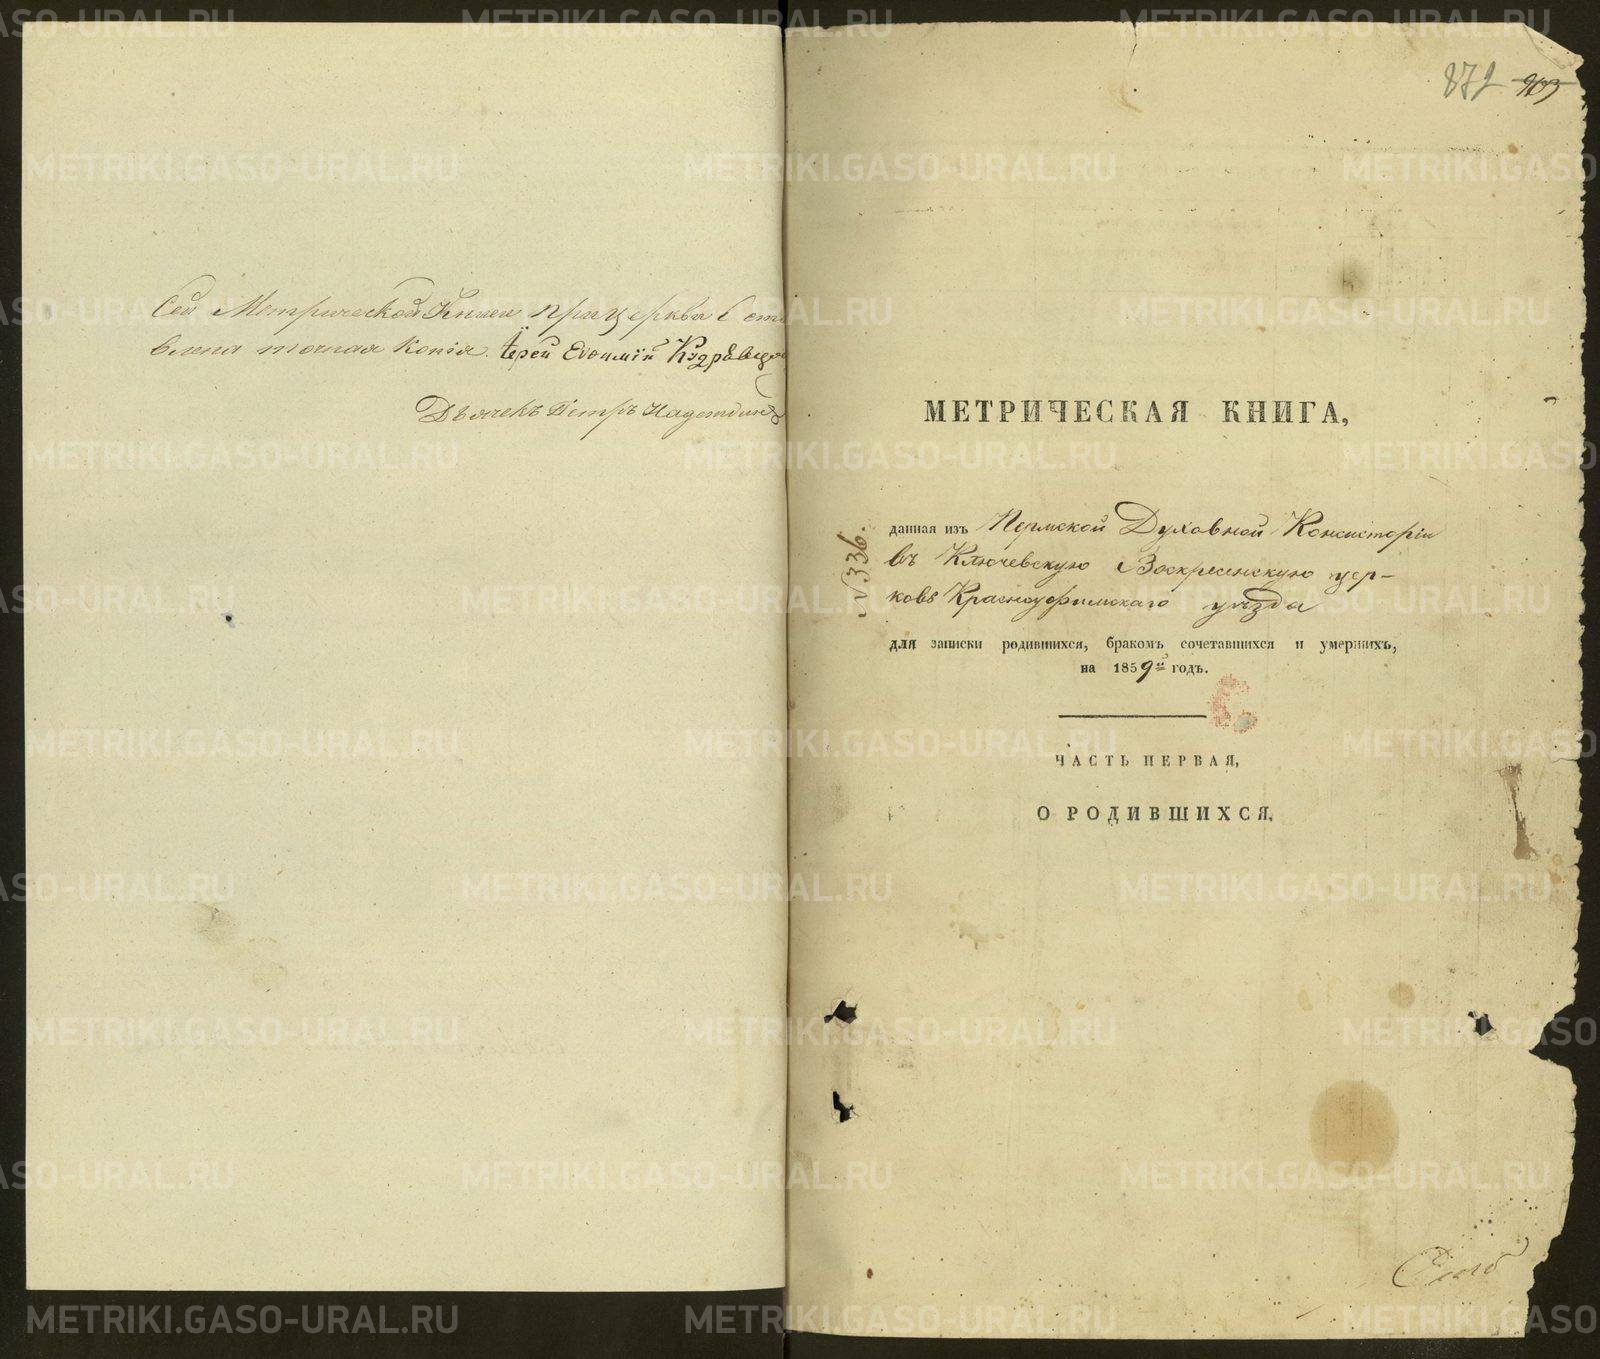 Сей Метрической Книги при церкви Оста
влена точная Копія. Іерей Евѳимій Кудрявцо
Дьячекъ Петръ Надеждинъ
872 903
МЕТРИЧЕСКАЯ КНИГА,
данная изъ Пермской Духовной Консисторіи
въ Ключевскую Воскресенскую цер-
ковь Красноуфимскаго уѣзда
№ 336.
для записки родившихся, бракомъ сочетавшихся и умершихъ,
на 1859й годъ.
ЧАСТЬ ПЕРВАЯ,
О РОДИВШИХСЯ.
METRIKI.GASO-URAL.RU